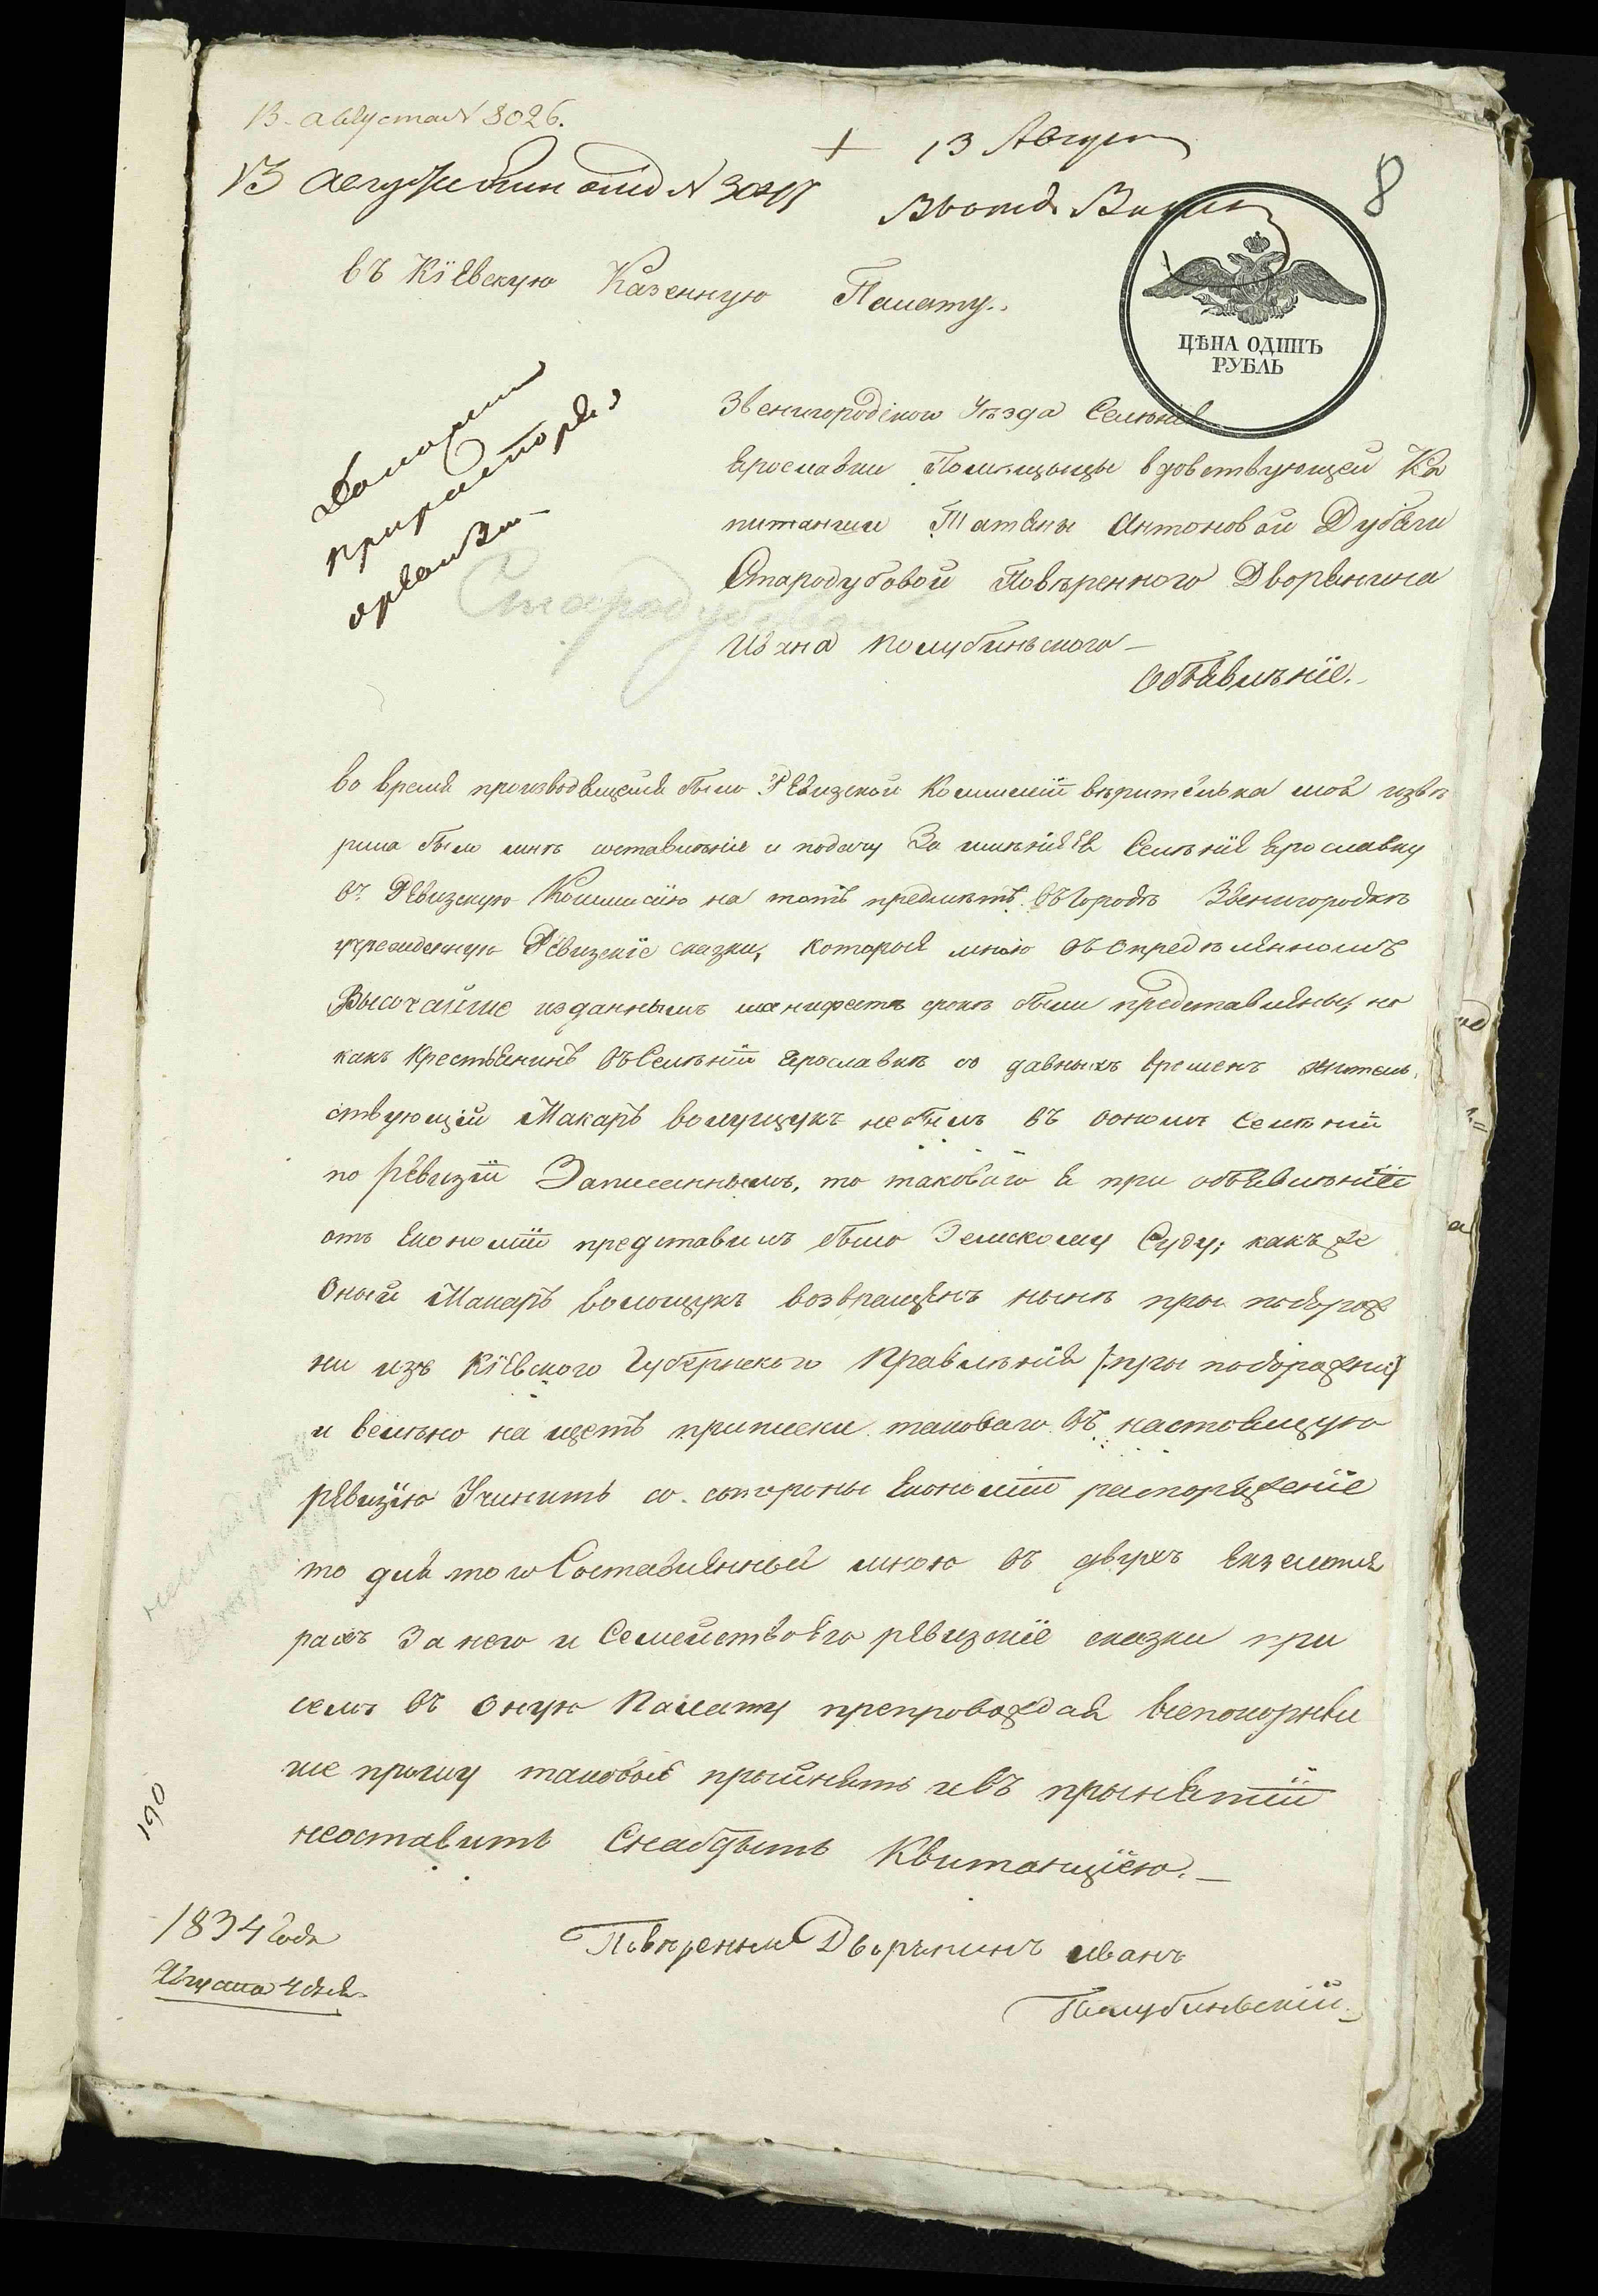 13 августа N 3026.
13 Август
8
въ Кіевскую Казенную Палату.
ЦѢНА ОДИНЪ
РУБЛЬ
Звенигородского Уѣзда Селѣнія
Ярославки Помѣщыцы вдовствующей Ка
питанши Татяны Антоновой Дубяги
Стародубовой Повѣренного Дворянина
Ивана Полубиньского
Стародубовой
Объявлѣніе.
во время производящейся было Ревизской Коммисіи вѣрителька моя извѣ
рила было мнѣ составлѣніе и подачу За имѣніяЕя Селѣніе Ярославку
въ Ревизскую Коммисію на тотъ предмѣтъ въ Городѣ Звенигородкѣ
учрежденную Ревизскіе сказки, которыя мною въ опредѣлянномъ
Высочайше изданнымъ манифестѣ срокѣ были представляны, но
какъ Крестьянинъ въ Селѣніи Ярославкѣ со давныхъ временъ жительс
ствующій Макаръ волущукъ небылъ въ ономъ Селѣніи
по ревизіи Записаннымъ, то таковаго я при объявлѣніи
отъ Економіи представилъ было Земскому Суду; какъ же
Оный Макаръ волощукъ возвращенъ нынѣ при подорож
ни изъ Кіевского Губернского Правлѣнія [при подорожни]
и велѣно на щетъ приписки таковаго въ настоящую
ревизію Учинить со стороны Економіи распоряженіе
то для того Составлянныя мною въ двухъ Екземпля
рахъ За него и Семейство Его ревизскіе сказки при
семъ въ оную Палату препровождая всепокорнѣй
ше прошу таковые прыйнять и въ прынятіи
неоставить Снабдыть Квитанцыею.
190
1834 Года
Августа 4 дня
Повѣренный Дворянинъ Иванъ
Полубиньскій